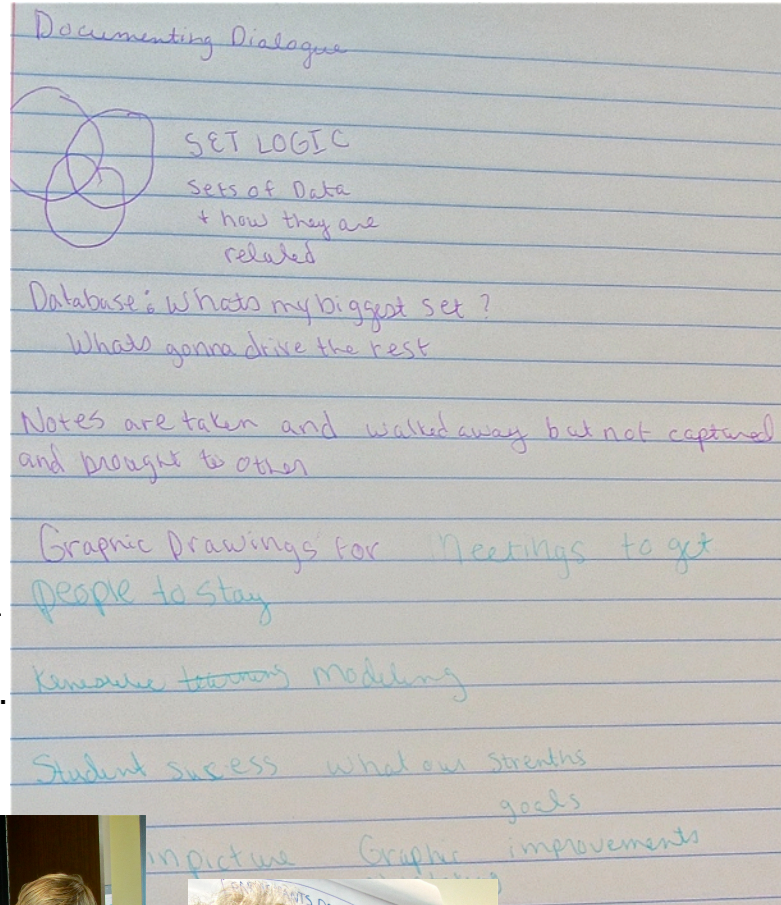 Documenting Dialogue
SET LOGIC
Sets of Data
+ how they are
related
Database: Whats my biggest set?
Whats gonna drive the rest
Notes are taken and walked away but not captured
and brought to other
Graphic Drawings for Meetings to get
people to stay
modeling
Student sucess what our strenths
goals
in picture Graphic improvements